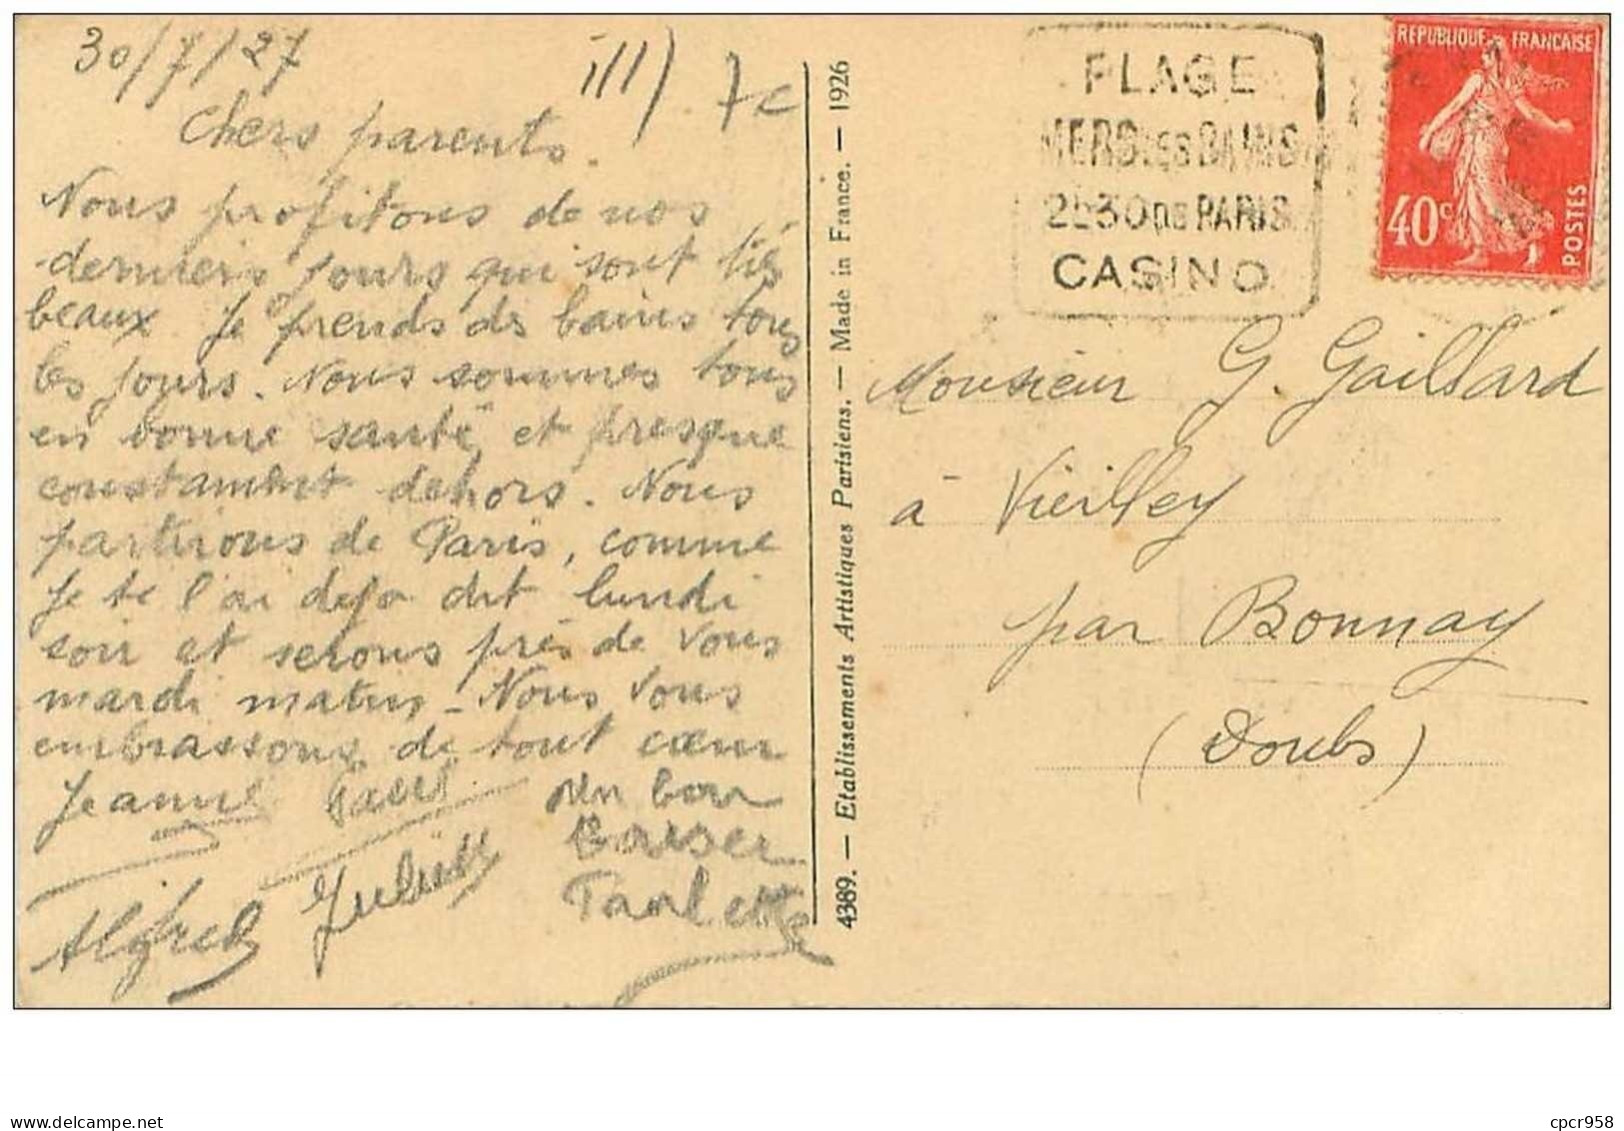 30/7/27
7c
Chers parents.
Nous profitons de nos
derniers jours qui sont très
beaux Je prends des bains tous
les jours. Nous sommes tous
en bonne santé et presque
constamment dehors. Nous
partirons de Paris, comme
je te l'ai deja dit lundi
soir et serons près de vous
mardi matin - Nous vous
embrassons de tout cœur
Jeanne Paul un bon
Baiser
Alfred Juliette Paulette
4389. — Etablissements Artistiques Parisiens. — Made in France. — 1926
PLAGE
MERS LES BAINS
2h30 DE PARIS
CASINO
REPUBLIQUE FRANCAISE
40c
POSTES
Monsieur G. Gaillard
à Vieilley
par Bonnay
(Doubs)
delcampe.net
cpcr958